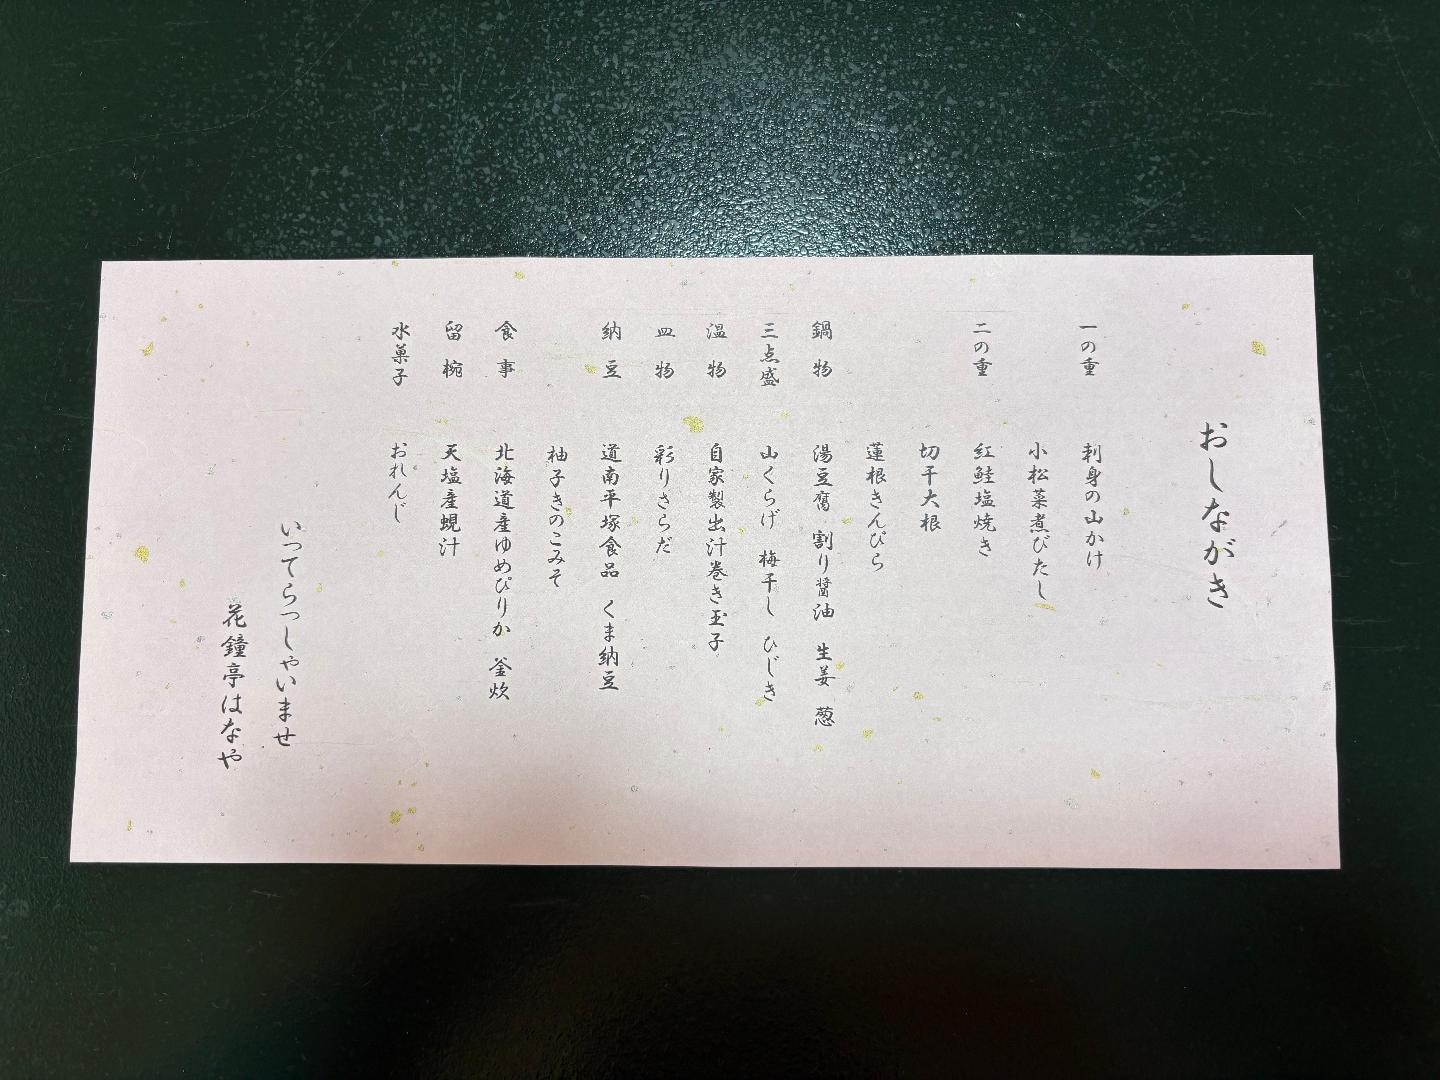 おしながき
一の重　刺身の山かけ
小松菜煮びたし
二の重　紅鮭塩焼き
切干大根
蓮根きんぴら
鍋物　湯豆腐　割り醤油　生姜　葱
三点盛　山くらげ　梅干し　ひじき
温物　自家製出汁巻き玉子
皿物　彩りさらだ
納豆　道南平塚食品　くま納豆
柚子きのこみそ
食事　北海道産ゆめぴりか　釜炊
留椀　天塩産蜆汁
水菓子　おれんじ
いってらっしゃいませ
花鐘亭はなや